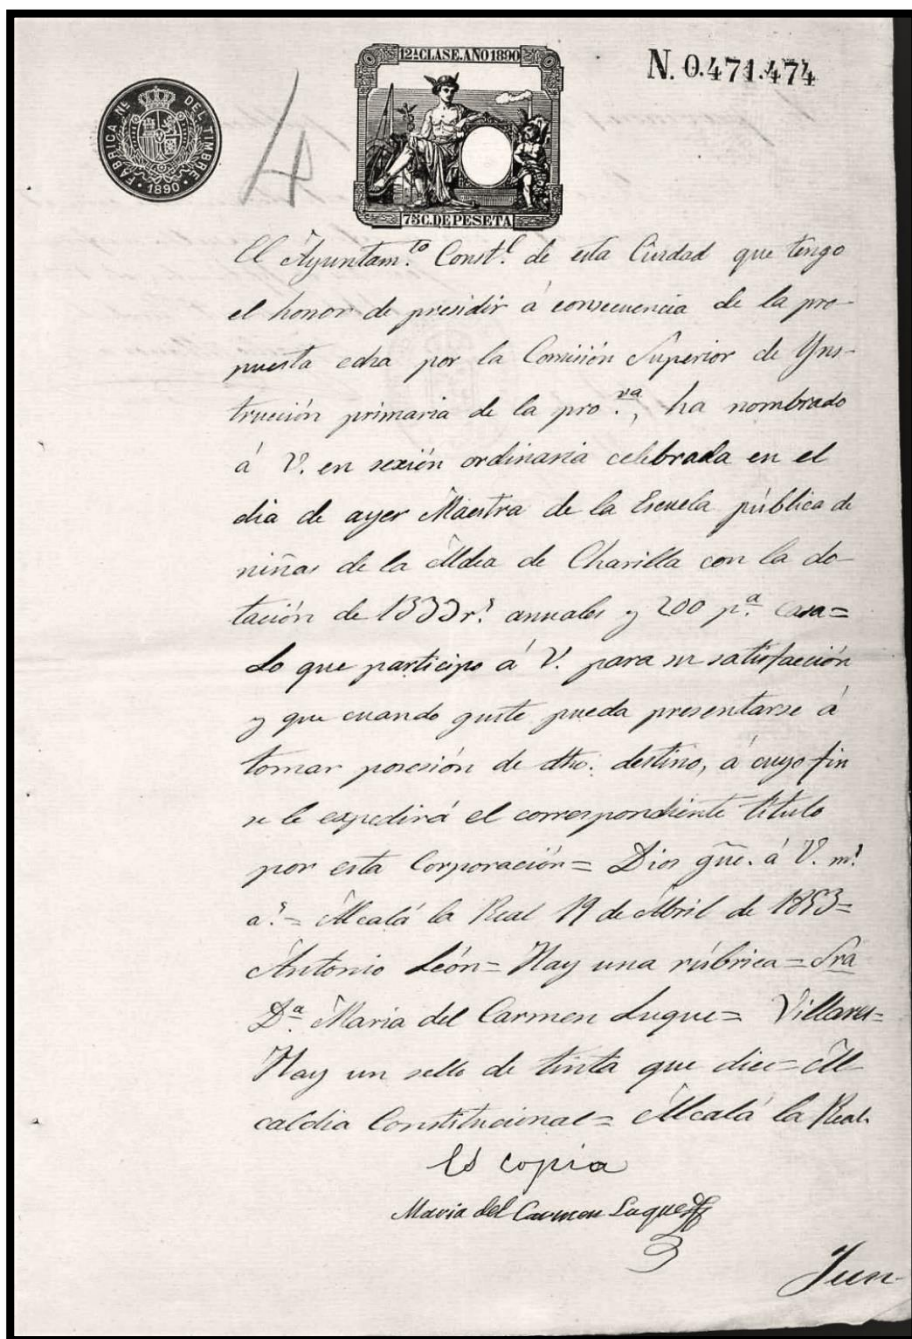 12ª CLASE. AÑO 1890
N. 0.471.474
FABRICA Nº DEL TIMBRE
1890
4
75 C. DE PESETA
El Ayuntam.to Const.l de esta Ciudad que tengo
el honor de presidir á consecuencia de la pro-
puesta echa por la Comisión Superior de Yns-
trucción primaria de la pro.va, ha nombrado
á V. en sexión ordinaria celebrada en el
dia de ayer Maestra de la Escuela pública de
niñas de la Aldea de Charilla con la do-
tación de 1333 r.s anuales y 200 p.a casa=
Lo que participo á V. para su satisfacción
y que cuando guste pueda presentarse á
tomar posesión de dho. destino, á cuyo fin
se le expedirá el correspondiente título
por esta Corporación= Dios güe. á V. m.s
a.s= Alcalá la Real 19 de Abril de 1853=
Antonio León= Hay una rúbrica= Sra
D.ª Maria del Carmen Luque= Villares=
Hay un sello de tinta que dice= Al
caldia Constitucional= Alcalá la Real.
Es copia
Maria del Carmen Luque